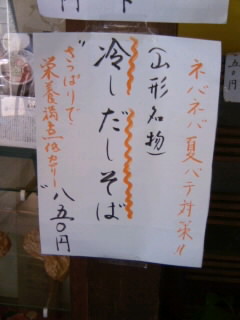 円
ネバネバ夏バテ対策!!
(山形名物)
冷しだしそば
さっぱりで
栄養満点
八五〇円